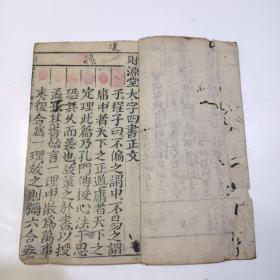 財源堂大字四書正文
子程子曰不偏之謂中不易之謂
庸中者天下之正道庸者天下之
定理此篇乃孔門傳授心法子思
恐其久而差也故筆之於書以授
孟子其書始言一理中散爲萬事
末復合爲一理放之則彌六合卷